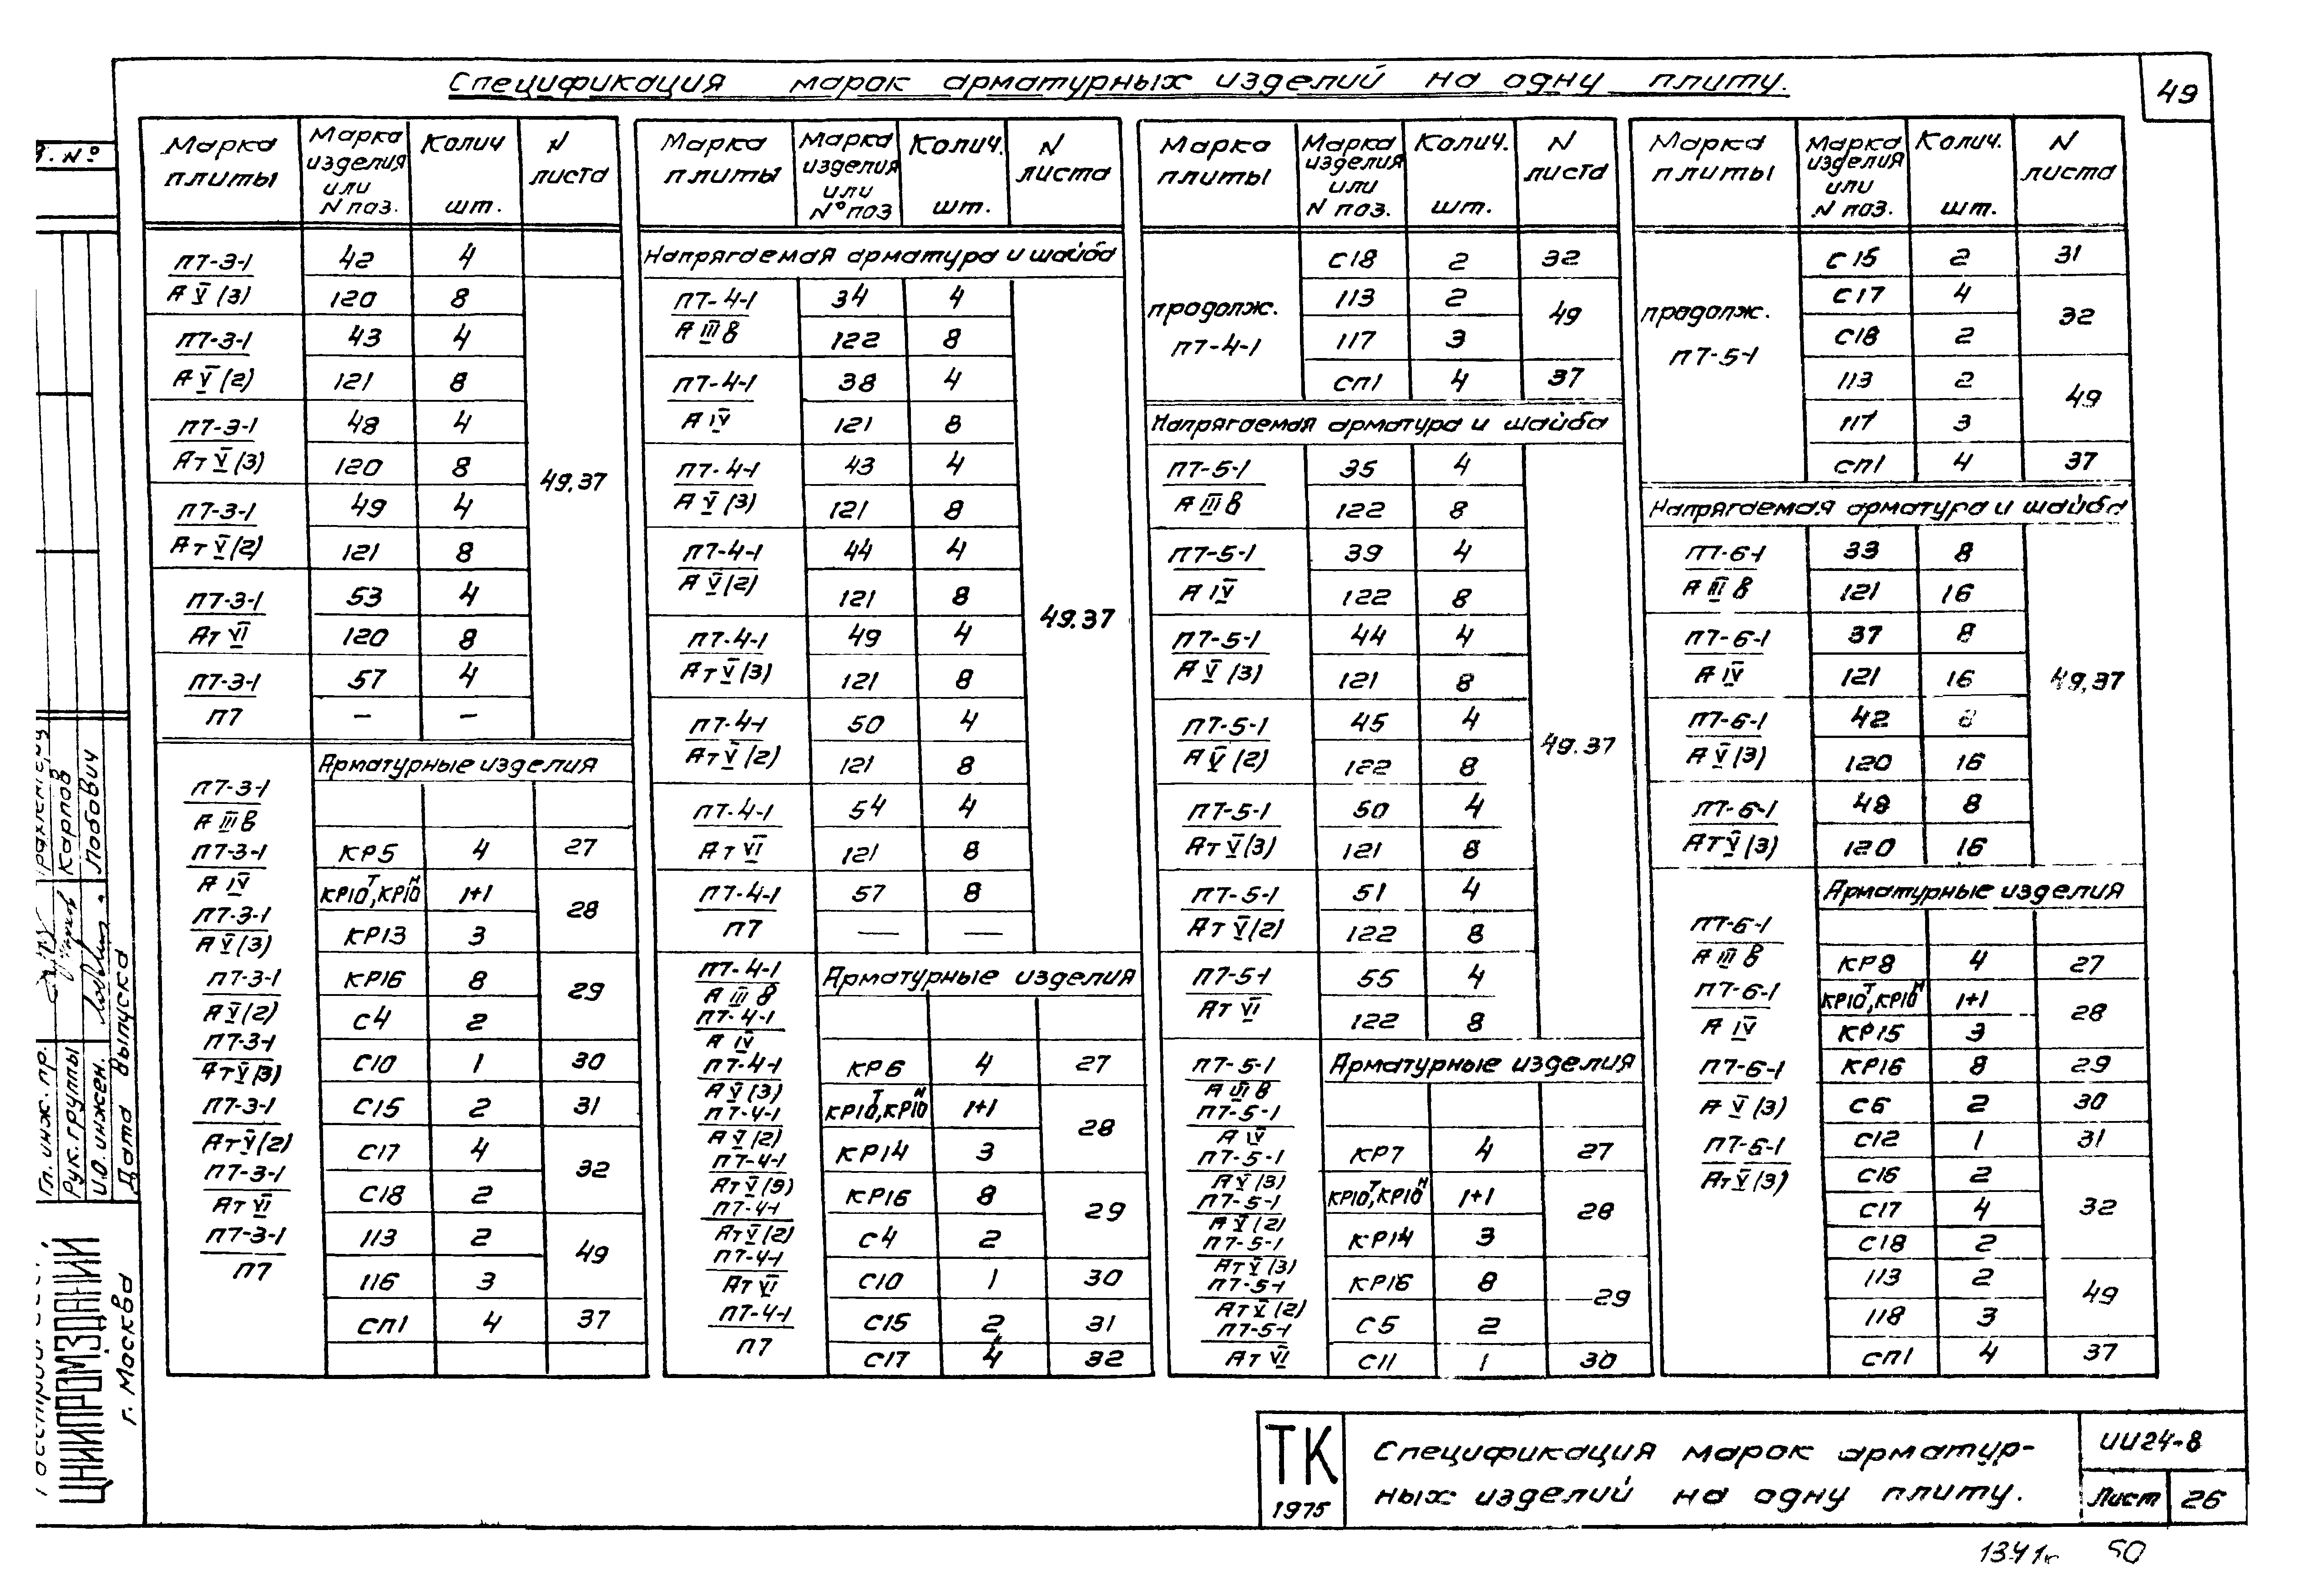 Спецификация марок арматурных изделий на одну плиту.
49
Марка плиты | Марка изделия или N поз. | Колич шт. | N листа
П7-3-1 | 42 | 4 | 49.37
А V (3) | 120 | 8
П7-3-1 | 43 | 4
А V (2) | 121 | 8
П7-3-1 | 48 | 4
Ат V (3) | 120 | 8
П7-3-1 | 49 | 4
Ат V (2) | 121 | 8
П7-3-1 | 53 | 4
Ат VI | 120 | 8
П7-3-1 | 57 | 4
П7 | — | —
Арматурные изделия
П7-3-1
А III в
П7-3-1
А IV
П7-3-1
А V (3)
П7-3-1
А V (2)
П7-3-1
Ат V (3)
П7-3-1
Ат V (2)
П7-3-1
Ат VI
П7-3-1
П7
КР5 | 4 | 27
КР10т, КР10н | 1+1 | 28
КР13 | 3
КР16 | 8 | 29
С4 | 2
С10 | 1 | 30
С15 | 2 | 31
С17 | 4 | 32
С18 | 2
113 | 2 | 49
116 | 3
СП1 | 4 | 37
Марка плиты | Марка изделия или N° поз | Колич. шт. | N листа
Напрягаемая арматура и шайба
П7-4-1 | 34 | 4 | 49.37
А III в | 122 | 8
П7-4-1 | 38 | 4
А IV | 121 | 8
П7-4-1 | 43 | 4
А V (3) | 121 | 8
П7-4-1 | 44 | 4
А V (2) | 121 | 8
П7-4-1 | 49 | 4
Ат V (3) | 121 | 8
П7-4-1 | 50 | 4
Ат V (2) | 121 | 8
П7-4-1 | 54 | 4
Ат VI | 121 | 8
П7-4-1 | 57 | 8
П7 | — | —
Арматурные изделия
П7-4-1
А III в
П7-4-1
А IV
П7-4-1
А V (3)
П7-4-1
А V (2)
П7-4-1
Ат V
П7-4-1
Ат V (2)
П7-4-1
Ат VI
П7-4-1
П7
КР6 | 4 | 27
КР10т, КР10н | 1+1 | 28
КР14 | 3
КР16 | 8 | 29
С4 | 2
С10 | 1 | 30
С15 | 2 | 31
С17 | 4 | 32
Марка плиты | Марка изделия или N поз. | Колич. шт. | N листа
продолж. П7-4-1
С18 | 2 | 32
113 | 2 | 49
117 | 3
СП1 | 4 | 37
Напрягаемая арматура и шайба
П7-5-1 | 35 | 4 | 49.37
А III в | 122 | 8
П7-5-1 | 39 | 4
А IV | 122 | 8
П7-5-1 | 44 | 4
А V (3) | 121 | 8
П7-5-1 | 45 | 4
А V (2) | 122 | 8
П7-5-1 | 50 | 4
Ат V (3) | 121 | 8
П7-5-1 | 51 | 4
Ат V (2) | 122 | 8
П7-5-1 | 55 | 4
Ат VI | 122 | 8
Арматурные изделия
П7-5-1
А III в
П7-5-1
А IV
П7-5-1
А V (3)
П7-5-1
А V (2)
П7-5-1
Ат V (3)
П7-5-1
Ат V (2)
П7-5-1
Ат VI
КР7 | 4 | 27
КР10т, КР10н | 1+1 | 28
КР14 | 3
КР16 | 8 | 29
С5 | 2
С11 | 1 | 30
Марка плиты | Марка изделия или N поз. | Колич. шт. | N листа
продолж. П7-5-1
С15 | 2 | 31
С17 | 4 | 32
С18 | 2
113 | 2 | 49
117 | 3
СП1 | 4 | 37
Напрягаемая арматура и шайба
П7-6-1 | 33 | 8 | 49,37
А III в | 121 | 16
П7-6-1 | 37 | 8
А IV | 121 | 16
П7-6-1 | 42 | 8
А V (3) | 120 | 16
П7-6-1 | 48 | 8
Ат V (3) | 120 | 16
Арматурные изделия
П7-6-1
А III в
П7-6-1
А IV
П7-6-1
А V (3)
П7-6-1
Ат V (3)
КР8 | 4 | 27
КР10т, КР10н | 1+1 | 28
КР15 | 3
КР16 | 8 | 29
С6 | 2 | 30
С12 | 1 | 31
С16 | 2 | 32
С17 | 4
С18 | 2
113 | 2 | 49
118 | 3
СП1 | 4 | 37
Гл. инж. пр.
Рук. группы Карпов
И.О. инжен. Лобович
Дата выпуска
ЦНИИПРОМЗДАНИЙ
г. Москва
ТК
1975
Спецификация марок арматур-
ных изделий на одну плиту.
ИИ24-8
Лист 26
1341к 50